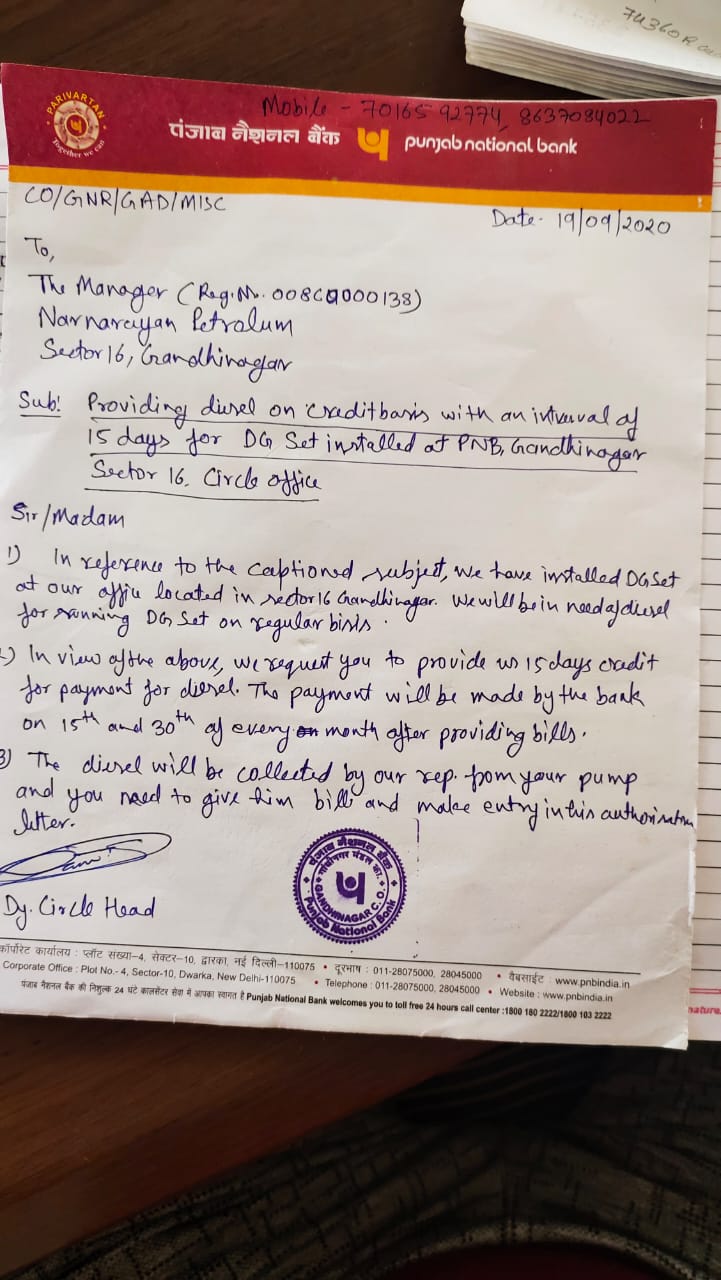 74360
PARIVARTAN
Together we can
Mobile - 7016592774, 8637084022
पंजाब नैशनल बैंक punjab national bank
CO/GNR/GAD/MISC
Date- 19/09/2020
To,
The Manager (Reg.M. 008CQ000138)
Narnarayan Petrolum
Sector 16, Gandhinagar
Sub! Providing diesel on credit basis with an interval of
15 days for DG Set installed at PNB, Gandhinagar
Sector 16. Circle office
Sir/Madam
1) In reference to the captioned subject, we have installed DG Set
at our office located in sector 16 Gandhinagar. We will be in need of diesel
for running DG Set on regular bisis.
2) In view of the above, we request you to provide us 15 days credit
for payment for diesel. The payment will be made by the bank
on 15th and 30th of every month after providing bills.
3) The diesel will be collected by our rep. from your pump
and you need to give him bill and make entry in this authorisation
letter.
पंजाब नैशनल बैंक
गांधीनगर मंडल का.
GANDHINAGAR C. O.
Punjab National Bank
Dy. Circle Head
कॉर्पोरेट कार्यालय : प्लॉट संख्या-4, सेक्टर-10, द्वारका, नई दिल्ली-110075 • दूरभाष : 011-28075000, 28045000 • वेबसाईट : www.pnbindia.in
Corporate Office : Plot No.- 4, Sector-10, Dwarka, New Delhi-110075 • Telephone : 011-28075000, 28045000 • Website : www.pnbindia.in
पंजाब नैशनल बैंक की निशुल्क 24 घंटे कालसेंटर सेवा में आपका स्वागत है Punjab National Bank welcomes you to toll free 24 hours call center :1800 180 2222/1800 103 2222
nature